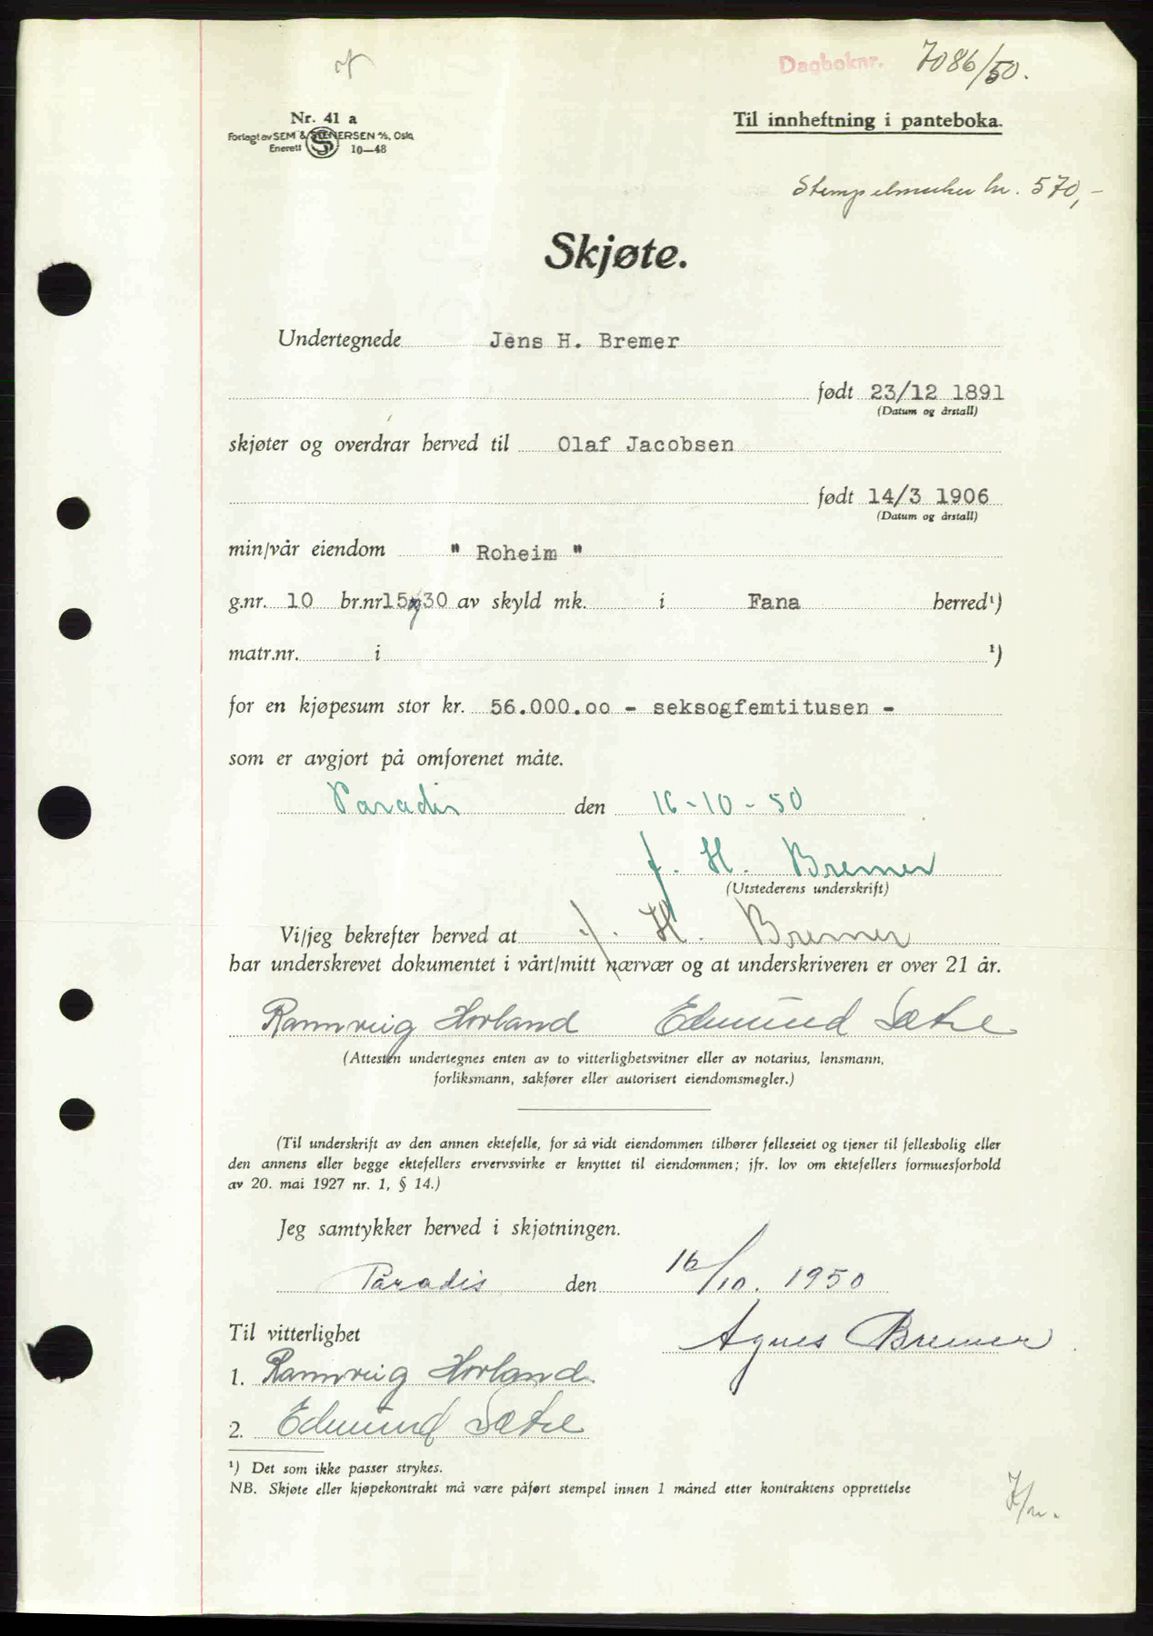 Dagboknr. 7086/50.
Nr. 41 a
Forlagt av SEM & STENERSEN A/S, Oslo
Enerett 10—48
Til innheftning i panteboka.
Stempelmerker kr. 570,-
Skjøte.
Undertegnede Jens H. Bremer
født 23/12 1891
(Datum og årstall)
skjøter og overdrar herved til Olaf Jacobsen
født 14/3 1906
(Datum og årstall)
min/vår eiendom " Roheim "
g.nr. 10 br.nr 15 og 30 av skyld mk. i Fana herred¹)
matr.nr. i ¹)
for en kjøpesum stor kr. 56.000.oo - seksogfemtitusen -
som er avgjort på omforenet måte.
Paradis den 16-10-50
J. H. Bremer
(Utstederens underskrift)
Vi/jeg bekrefter herved at J. H. Bremer
har underskrevet dokumentet i vårt/mitt nærvær og at underskriveren er over 21 år.
Rannveig Horland Edmund Sætre
(Attesten undertegnes enten av to vitterlighetsvitner eller av notarius, lensmann,
forliksmann, sakfører eller autorisert eiendomsmegler.)
(Til underskrift av den annen ektefelle, for så vidt eiendommen tilhører felleseiet og tjener til fellesbolig eller
den annens eller begge ektefellers ervervsvirke er knyttet til eiendommen; jfr. lov om ektefellers formuesforhold
av 20. mai 1927 nr. 1, § 14.)
Jeg samtykker herved i skjøtningen.
Paradis den 16/10. 1950
Til vitterlighet
Agnes Bremer
1. Rannveig Horland
2. Edmund Sætre
¹) Det som ikke passer strykes.
NB. Skjøte eller kjøpekontrakt må være påført stempel innen 1 måned etter kontraktens opprettelse